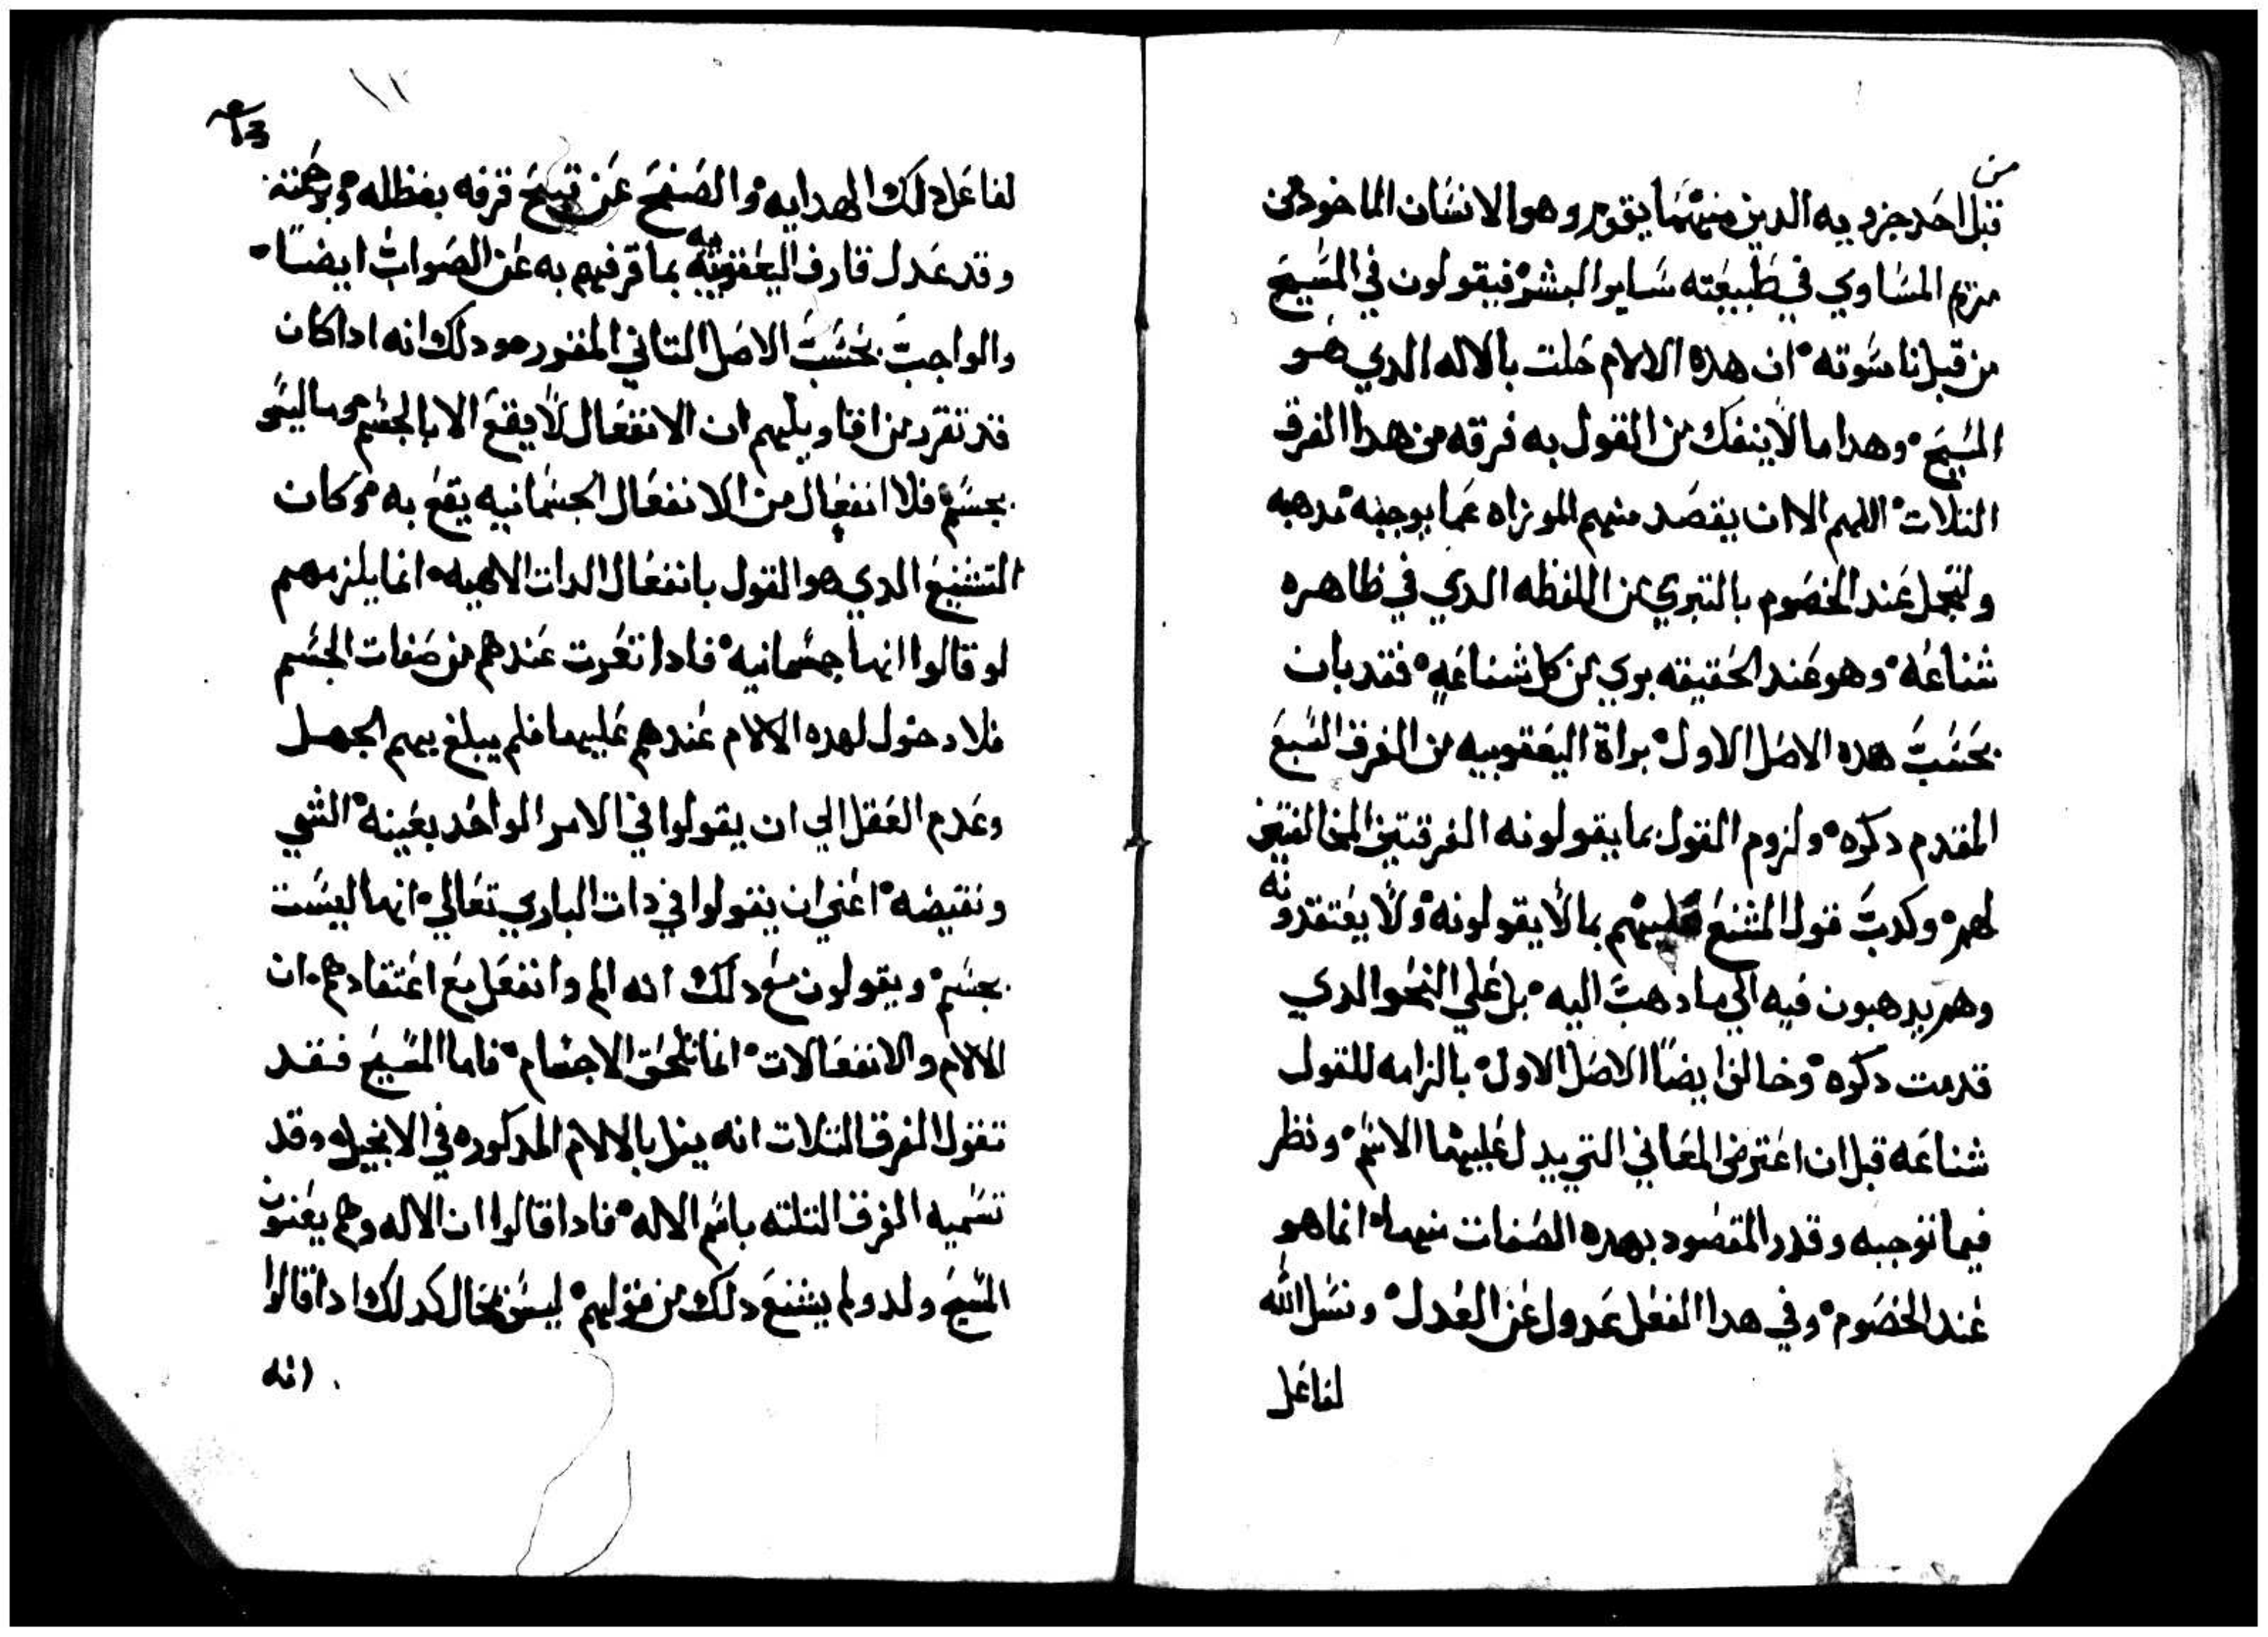 من
قبل احد جزويه الدين منهما يقوم وهو الانسان الماخود من
مريم المساوي في طبيعته ساير البشر فيقولون في المسيح
من قبل ناسوته ان هده الالام حلت بالاله الدي هو
المسيح وهدا ما لا ينفك من القول به فرقه من هدا الفرق
التلات اللهم الا ان يقصد منهم المواراه عما يوجبه مدهبه
ولتجمل عند الخصوم بالتبري من اللفظه الدي في ظاهره
شناعه وهو عند الحقيقه بري من كل شناعه فقد بان
بحسب هده الاصل الاول براة اليعقوبيه من الفرق السبع
المقدم دكره ولزوم القول بما يقولونه الفرقتين المخالفتين
لهم وكدب قول المشنع عليهم بما لا يقولونه ولا يعتقدونه
وهم يدهبون فيه الي ما دهب اليه بل علي النحو الدي
قدمت دكره وخالف ايضا الاصل الاول بالزامه للقول
شناعه قبل ان اعترض المعاني التي يدل عليهما الاسم ونظر
فيما نوجبه وقدر المقصود بهده الصفات منهما انما هو
عند الخصوم وفي هدا الفعل عدول عن العدل ونسل الله
لفاعل
لفاعل دلك الهدايه والصفح عن قبيح قرفه بفظله وبرحمته
وقد عدل قارف اليعقوبيه بما قرفهم به عن الصواب ايضا
والواجب بحسب الاصل التاني المقرر هو دلك انه اداكان
قد تقرر من اقاويلهم ان الانفعال لا يقع الا بالجسم وما ليس
بجسم فلا انفعال من الانفعال الجسمانيه يقع به وكان
التشنيع الدي هو القول بانفعال الدات الالهيه انما يلزمهم
لو قالوا انها جسمانيه فادا تعرت عندهم من صفات الجسم
فلا دخول لهده الالام عندهم عليها فلم يبلغ بهم الجهل
وعدم العقل الي ان يقولوا في الامر الواحد بعينه الشي
ونقيضه اعني ان يقولوا في دات الباري تعالي انها ليست
بجسم ويقولون مع دلك انه الم وانفعل مع اعتقادهم ان
الالام والانفعالات انما تلحق الاجسام فاما المسيح فقد
تقول الفرق التلات انه ينل بالالام المدكوره في الانجيل وقد
تسميه الفرق التلته باسم الاله فادا قالوا ان الاله وهم يعنون
المسيح ولد ولم يشنع دلك من قولهم ليس بمحال كدلك ادا قالوا
انه